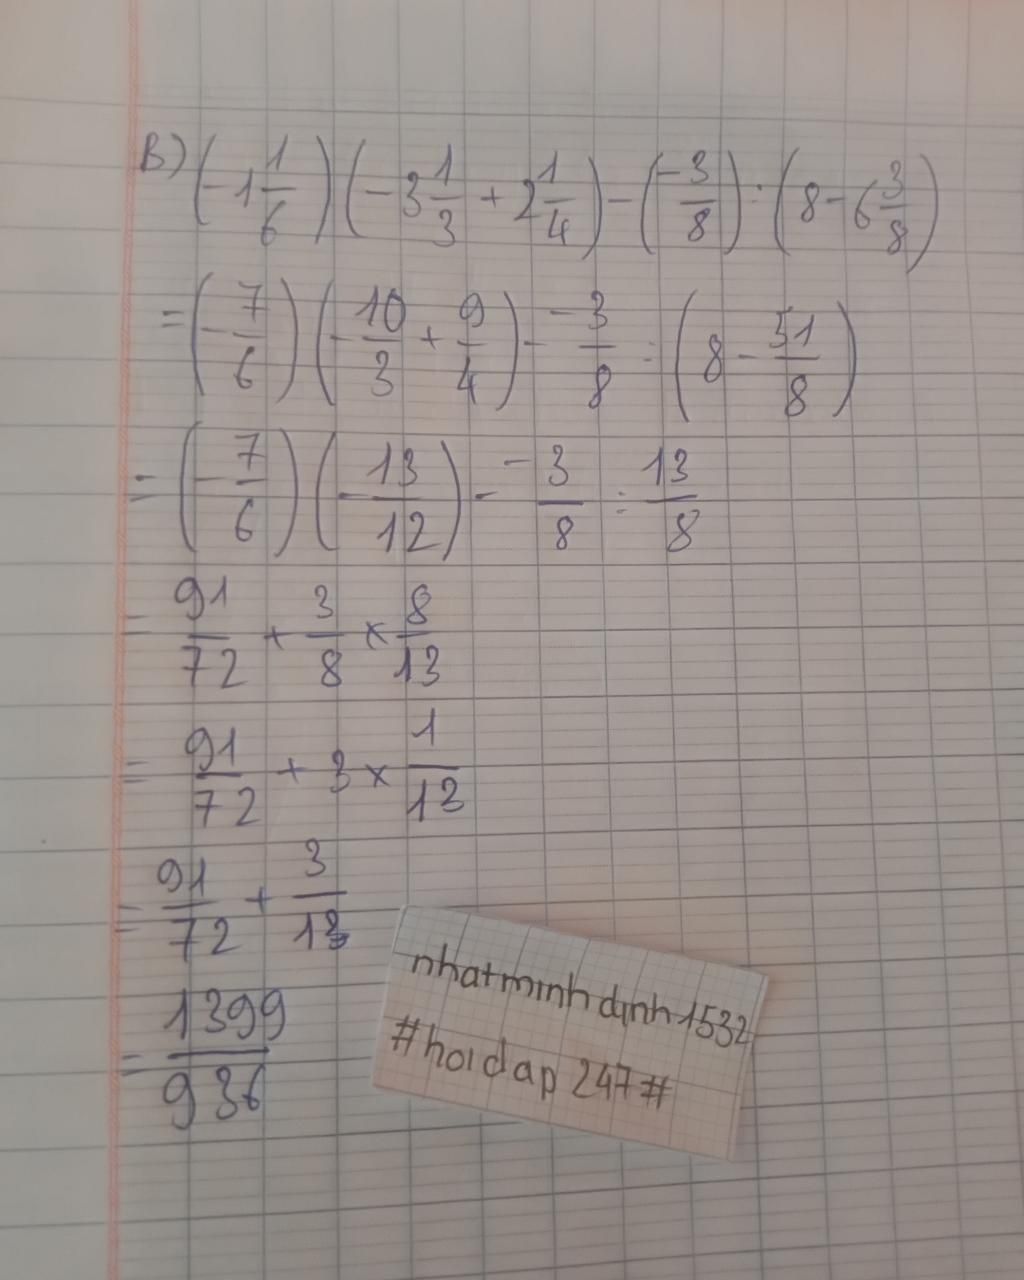 B) (-1 1/6) (-3 1/3 + 2 1/4) - (-3/8) : (8 - 6 3/8)
= (-7/6) (-10/3 + 9/4) - -3/8 : (8 - 51/8)
= (-7/6) (-13/12) - -3/8 : 13/8
= 91/72 + 3/8 × 8/13
= 91/72 + 3 × 1/13
= 91/72 + 3/13
= 1399/936
nhatminhdinh1532
#hoidap247#